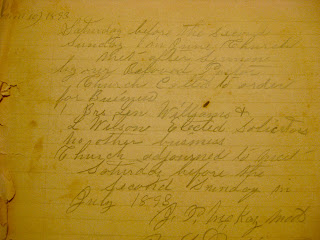 1893
Saturday before the Second
Sunday Church
Met after Sermon
by our Pastor
Church Called to order
for Business
Bro Williams &
L Wilson Elected
no other business
Church adjourned to meet
Saturday before the
Second Sunday in
July 1893
J. P. Mod